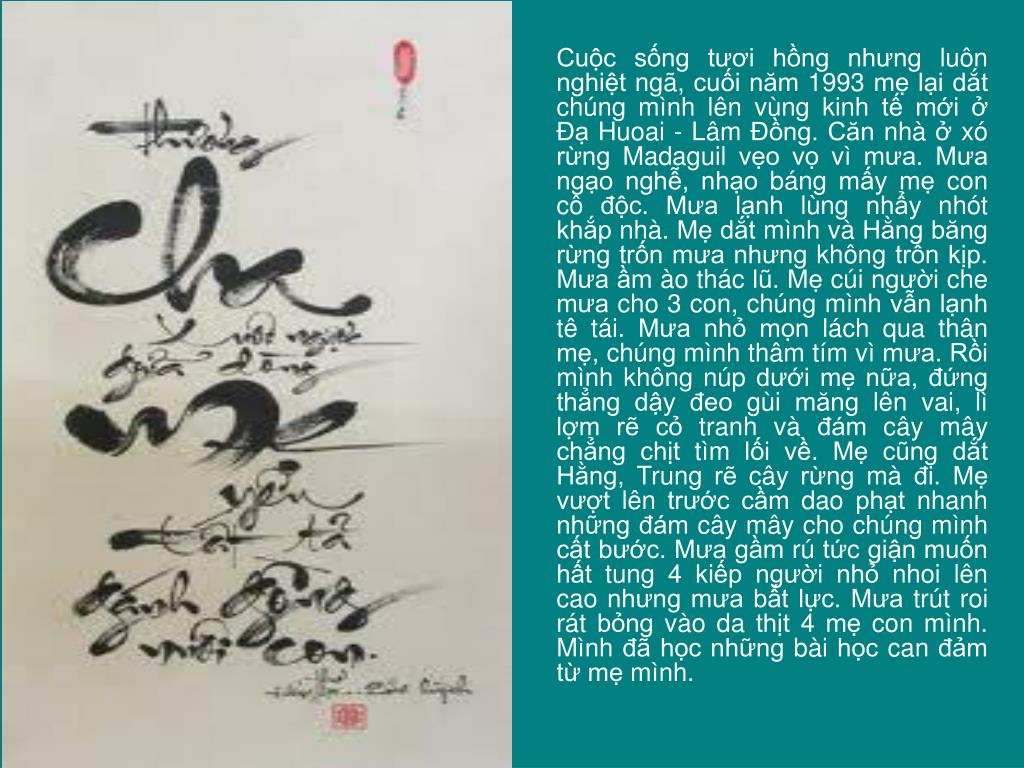 thương
cha
xuôi ngược
giữa dòng
mẹ
yếu
tất tả
gánh gồng
nuôi con.
Cuộc sống tươi hồng nhưng luôn
nghiệt ngã, cuối năm 1993 mẹ lại dắt
chúng mình lên vùng kinh tế mới ở
Đạ Huoai - Lâm Đồng. Căn nhà ở xó
rừng Madaguil vẹo vọ vì mưa. Mưa
ngạo nghễ, nhạo báng mấy mẹ con
cô độc. Mưa lạnh lùng nhẩy nhót
khắp nhà. Mẹ dắt mình và Hằng băng
rừng trốn mưa nhưng không trốn kịp.
Mưa ầm ào thác lũ. Mẹ cúi người che
mưa cho 3 con, chúng mình vẫn lạnh
tê tái. Mưa nhỏ mọn lách qua thân
mẹ, chúng mình thâm tím vì mưa. Rồi
mình không núp dưới mẹ nữa, đứng
thẳng dậy đeo gùi măng lên vai, lì
lợm rẽ cỏ tranh và đám cây mây
chằng chịt tìm lối về. Mẹ cũng dắt
Hằng, Trung rẽ cây rừng mà đi. Mẹ
vượt lên trước cầm dao phạt nhanh
những đám cây mây cho chúng mình
cất bước. Mưa gầm rú tức giận muốn
hất tung 4 kiếp người nhỏ nhoi lên
cao nhưng mưa bất lực. Mưa trút roi
rát bỏng vào da thịt 4 mẹ con mình.
Mình đã học những bài học can đảm
từ mẹ mình.